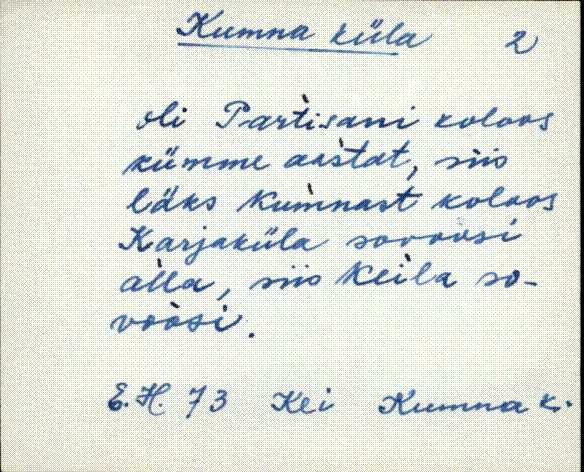 Kumna küla 2
oli Partisani koloos
kümme aastat, siis
läks Kumnast koloos
Karjaküla sovoosi
alla, siis Keila so-
voosi.
E.H. 73 Kei Kumna k.